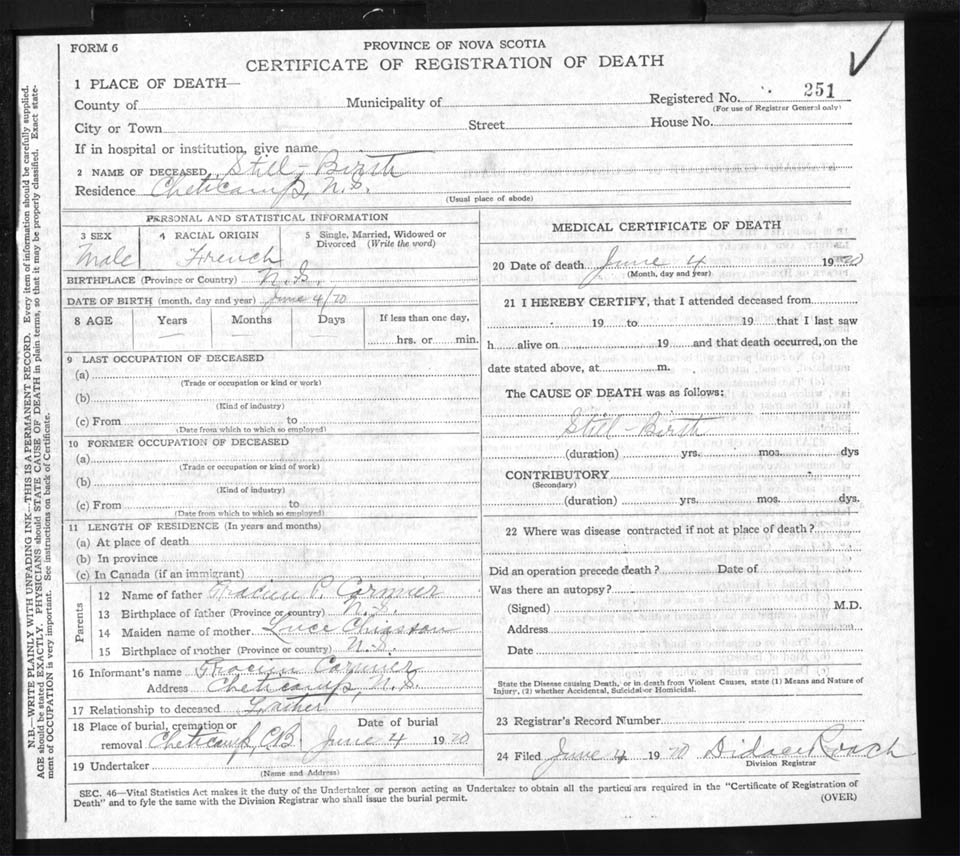 FORM 6
PROVINCE OF NOVA SCOTIA
CERTIFICATE OF REGISTRATION OF DEATH
1 PLACE OF DEATH—
County of Municipality of Registered No. 251
(For use of Registrar General only)
City or Town Street House No.
If in hospital or institution, give name
2 NAME OF DECEASED Still-Birth
Residence Cheticamp, N.S.
(Usual place of abode)
PERSONAL AND STATISTICAL INFORMATION
3 SEX 4 RACIAL ORIGIN 5 Single, Married, Widowed or Divorced (Write the word)
Male French
BIRTHPLACE (Province or Country) N.S.
DATE OF BIRTH (month, day and year) June 4/
8 AGE Years Months Days If less than one day,
hrs. or min.
9 LAST OCCUPATION OF DECEASED
(a)
(Trade or occupation or kind or work)
(b)
(Kind of industry)
(c) From to
(Date from which to which so employed)
10 FORMER OCCUPATION OF DECEASED
(a)
(Trade or occupation or kind or work)
(b)
(Kind of industry)
(c) From to
(Date from which to which so employed)
11 LENGTH OF RESIDENCE (In years and months)
(a) At place of death
(b) In province
(c) In Canada (if an immigrant)
Parents
12 Name of father P. Cormier
13 Birthplace of father (Province or country) N.S.
14 Maiden name of mother Luce Chiasson
15 Birthplace of mother (Province or country) N.S.
16 Informant's name Cormier
Address Cheticamp, N.S.
17 Relationship to deceased Father
18 Place of burial, cremation or Date of burial
removal Cheticamp, C.B. June 4 19
19 Undertaker
(Name and Address)
MEDICAL CERTIFICATE OF DEATH
20 Date of death June 4 19
(Month, day and year)
21 I HEREBY CERTIFY, that I attended deceased from
19 to 19 that I last saw
h alive on 19 and that death occurred, on the
date stated above, at m.
The CAUSE OF DEATH was as follows:
Still-Birth
(duration) yrs. mos. dys
CONTRIBUTORY
(Secondary)
(duration) yrs. mos. dys.
22 Where was disease contracted if not at place of death?
Did an operation precede death? Date of
Was there an autopsy?
(Signed) M.D.
Address
Date
State the Disease causing Death, or in death from Violent Causes, state (1) Means and Nature of
Injury, (2) whether Accidental, Suicidal or Homicidal.
23 Registrar's Record Number
24 Filed June 4 19 Didace Roach
Division Registrar
SEC. 46—Vital Statistics Act makes it the duty of the Undertaker or person acting as Undertaker to obtain all the particulars required in the "Certificate of Registration of
Death" and to fyle the same with the Division Registrar who shall issue the burial permit.
(OVER)
N.B.—WRITE PLAINLY WITH UNFADING INK—THIS IS A PERMANENT RECORD. Every item of information should be carefully supplied.
AGE should be stated EXACTLY. PHYSICIANS should STATE CAUSE OF DEATH in plain terms, so that it may be properly classified. Exact state-
ment of OCCUPATION is very important. See instructions on back of Certificate.